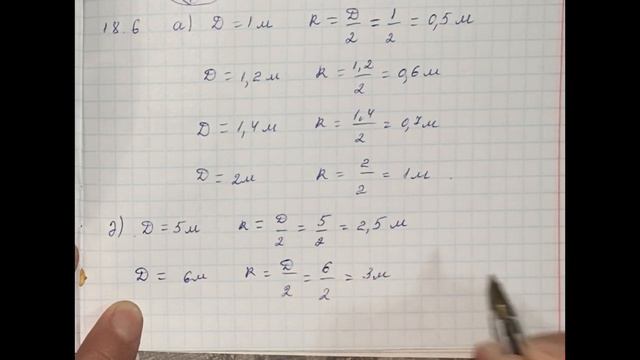 18.6 а) D = 1 м R = D/2 = 1/2 = 0,5 м
D = 1,2 м R = 1,2/2 = 0,6 м
D = 1,4 м R = 1,4/2 = 0,7 м
D = 2 м R = 2/2 = 1 м.
д) D = 5 м R = D/2 = 5/2 = 2,5 м
D = 6 м R = D/2 = 6/2 = 3 м